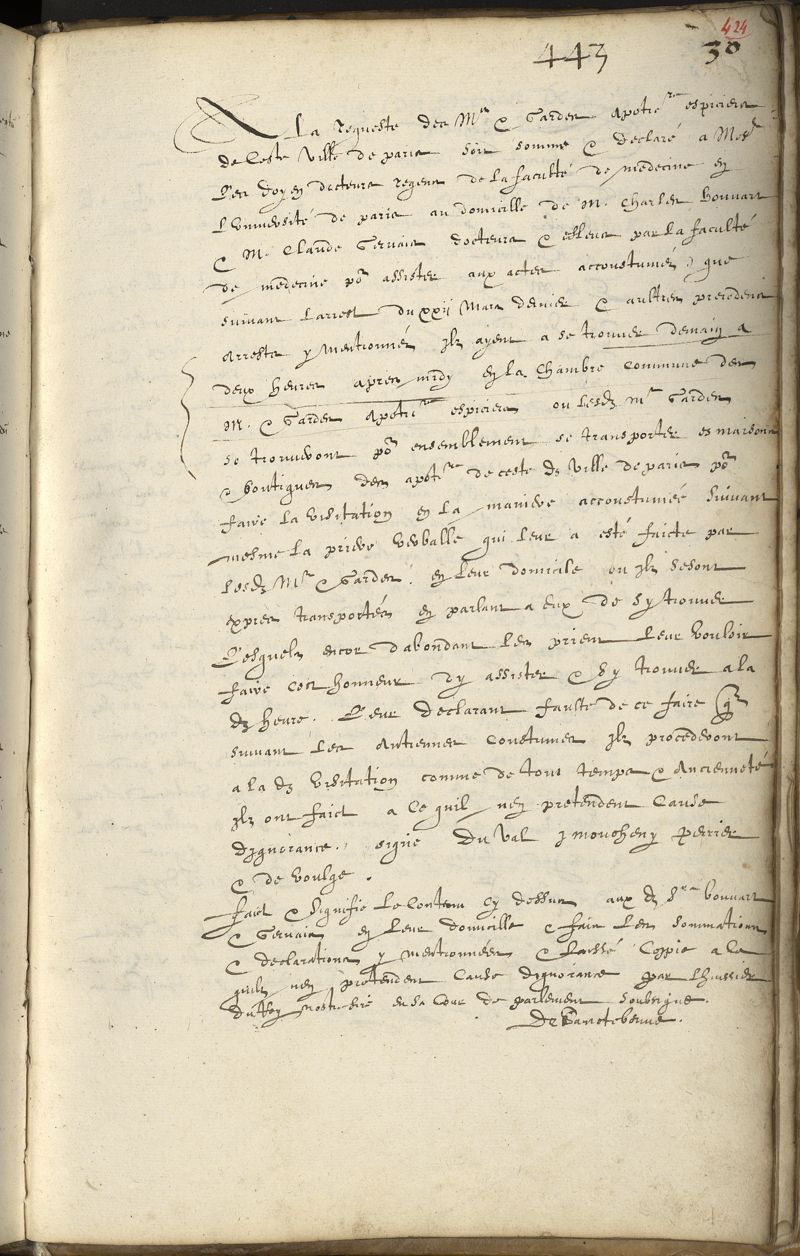 424
443 30
A La requeste des Mes & Gardes apotres espiciers
de Ceste Ville de paris soit somme & declaré a Messrs
Les doyen docteurs regens de la faculté de medecine en
Luniversité de paris au domicille de M. Charles bouvart
& M. Claude Gervais docteurs & esleus par la faculté
de medecine por assister aux actes accoustumés, que
suivant Larrest du xxii Mars dernier & aultres precedens
arrests y mentionnés Ilz ayent a se trouver demain a
deux heures apres midy en la Chambre Commune des
M. & Gardes apotres espiciers ou lesdz mes Gardes
se trouveront por ensemblement se transporter es maisons
& boutiques des apotres de ceste dz ville de paris por
faire la visitation en la maniere accoustumée suivant
mesme la priere verballe qui leur a esté faicte par
lesdz Mes & Gardes en leur domicile ou ilz se sont
exprés transportés en parlant a eux de sy trouver
Lesquelz encor dabondant les prient leur vouloir
faire cest honneur dy assister & sy trouver a la
dz heure. Leur declarant faulte de ce faire
suivant les antiennes Coustumes Ilz procederont
a la dz visitation comme de tout temps & ancienneté
ilz ont faict a ce quil nen pretendent Cause
dignorance. signé Du val J moucheny perrier
& de boulge.
faict & signifié le Contenu cy dessus aux dz Srs bouvart
& Gervais en leur domicille & faict les sommations
& declarations y mentionnees & laissé Coppie a ce
quilz nen pretendent Cause dignorance par Lhuissier
du Roy nostre sire en sa Cour de parlement soubsigné.
De Sainctebeuve.